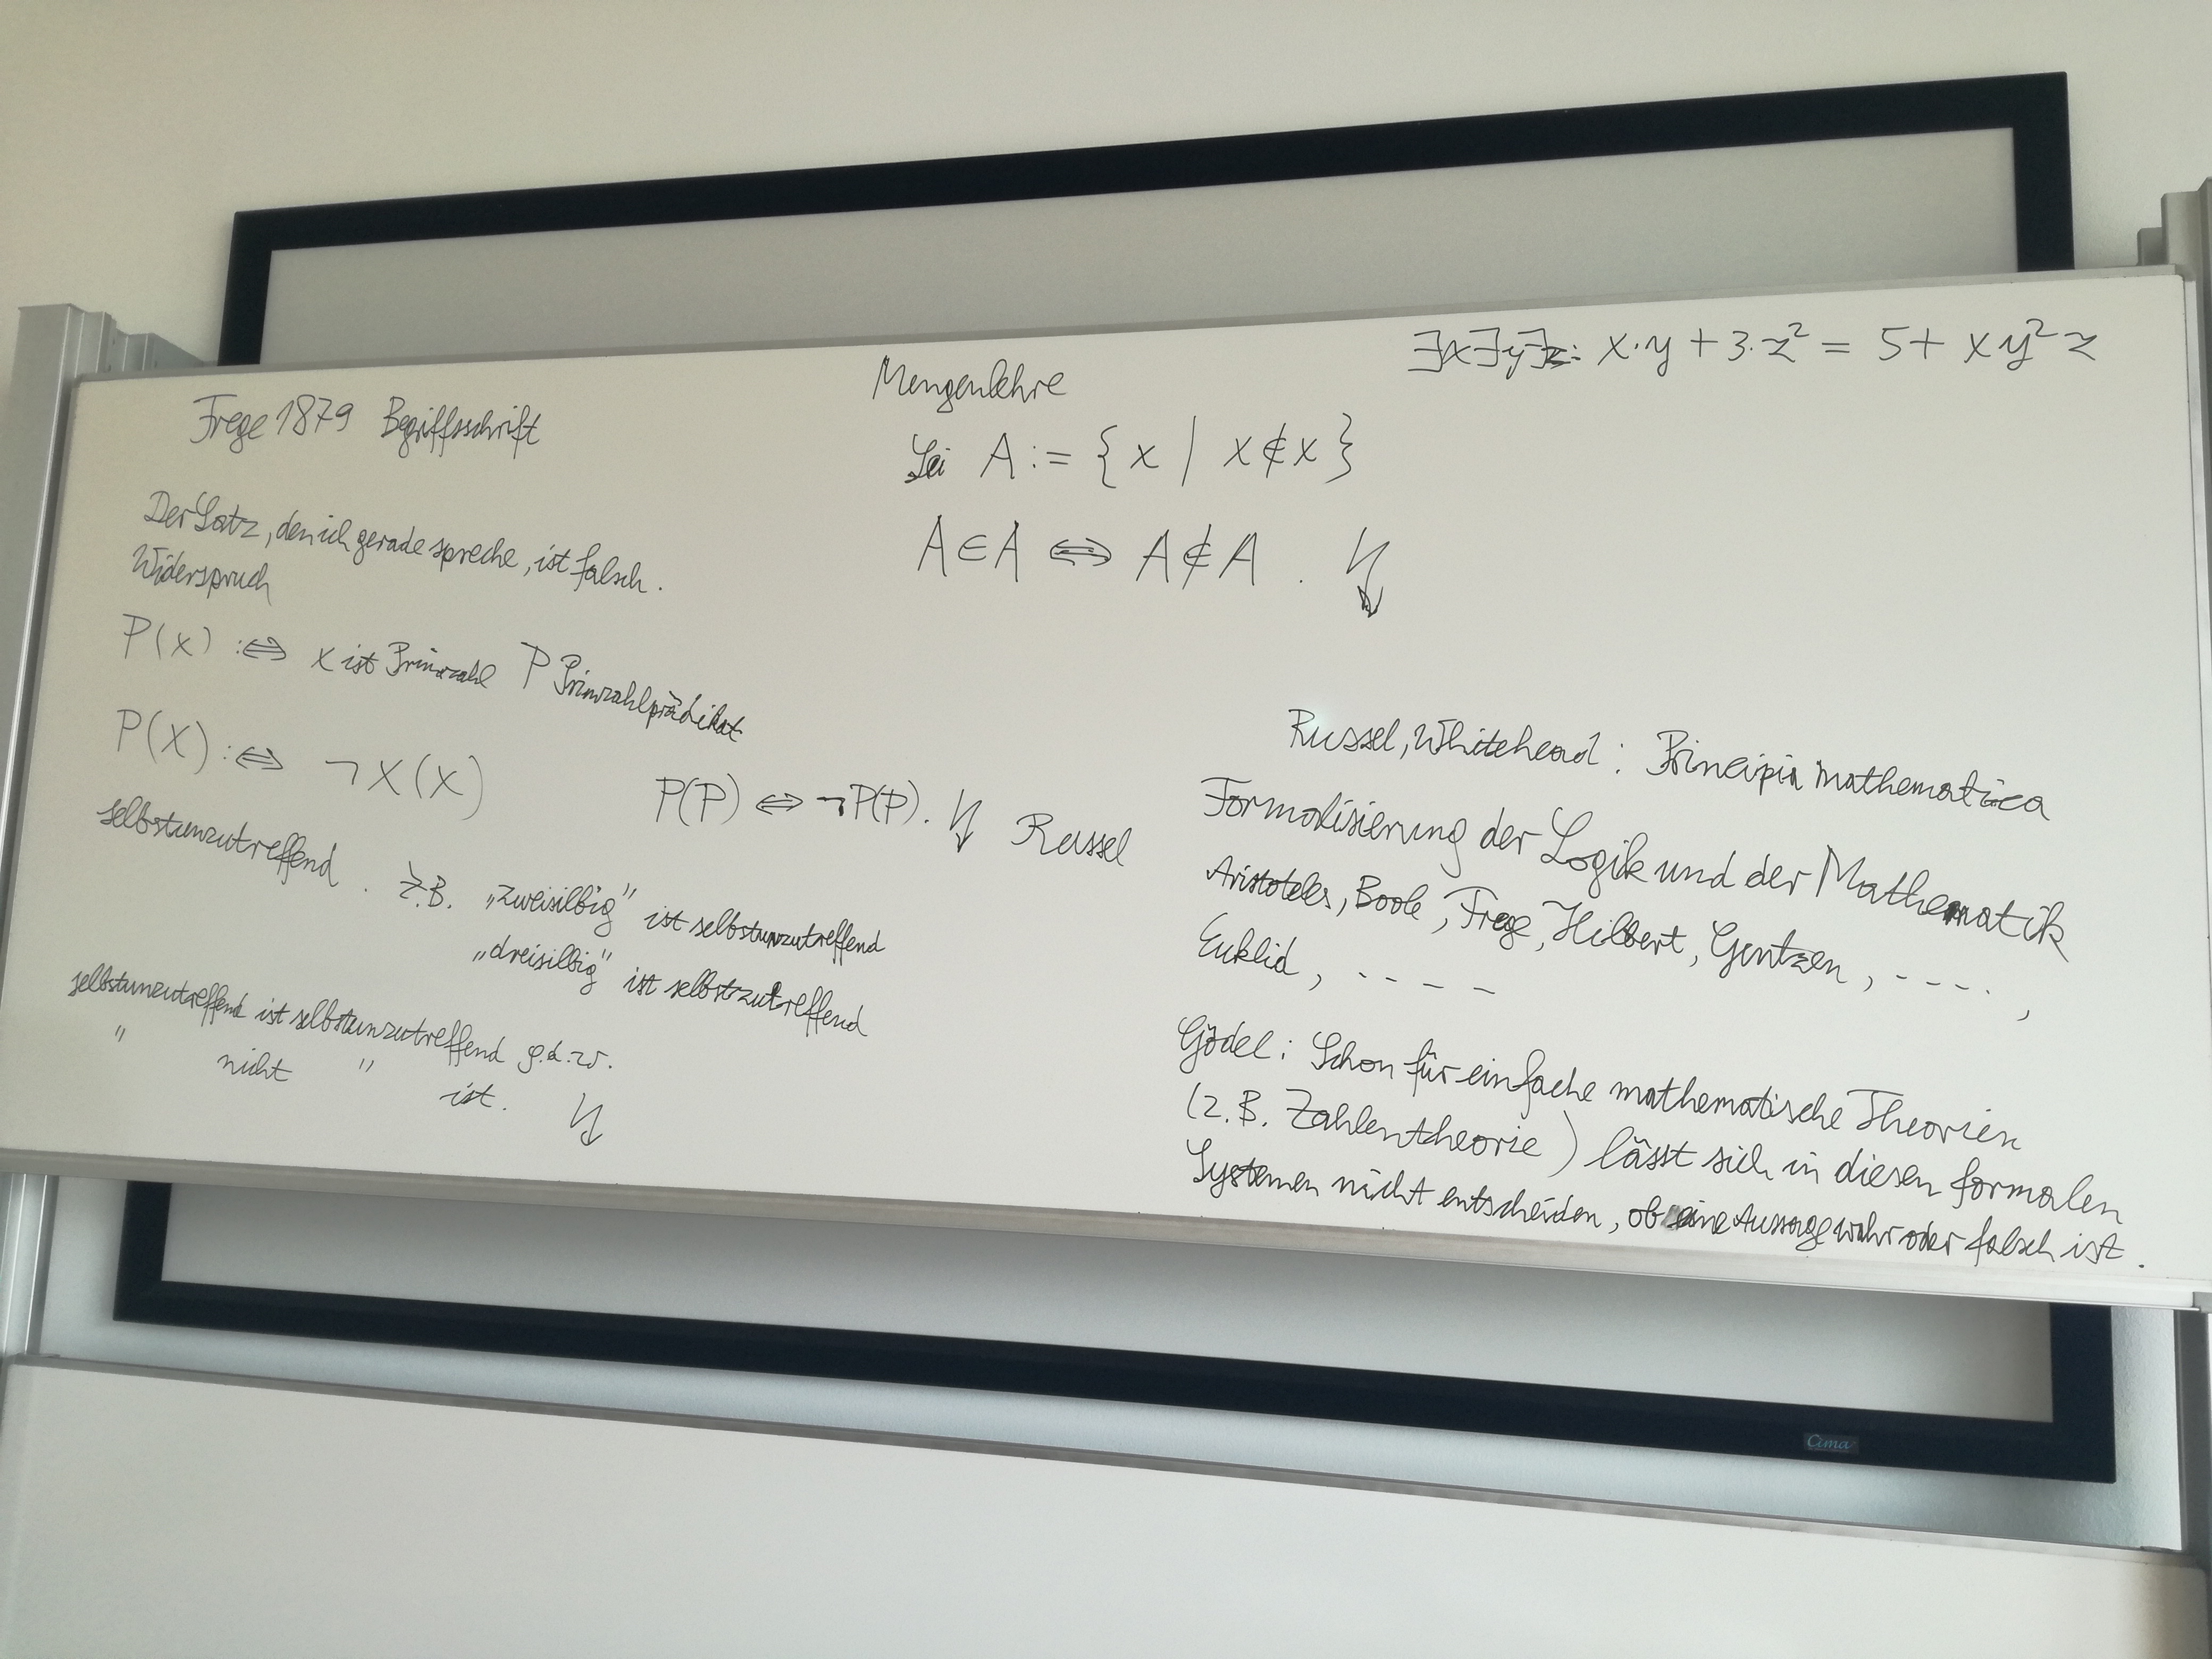 Frege 1879 Begriffsschrift
Der Satz, den ich gerade spreche, ist falsch.
Widerspruch
P(x) :⇔ x ist Primzahl P Primzahlprädikat
P(X) :⇔ ¬X(X)
P(P) ⇔ ¬P(P). ↯ Russel
selbstunzutreffend. z.B. „zweisilbig" ist selbstunzutreffend
„dreisilbig" ist selbstzutreffend
selbstunzutreffend ist selbstunzutreffend g.d.w.
" nicht " ist. ↯
Mengenlehre
Sei A := {x | x∉x}
A∈A ⇔ A∉A. ↯
∃x∃y∃z: x·y + 3·z² = 5 + xy²z
Russel, Whitehead: Principia mathematica
Formalisierung der Logik und der Mathematik
Aristoteles, Boole, Frege, Hilbert, Gentzen, ----,
Euklid, ----
Gödel: Schon für einfache mathematische Theorien
(z.B. Zahlentheorie) lässt sich in diesen formalen
Systemen nicht entscheiden, ob eine Aussage wahr oder falsch ist.
Cima